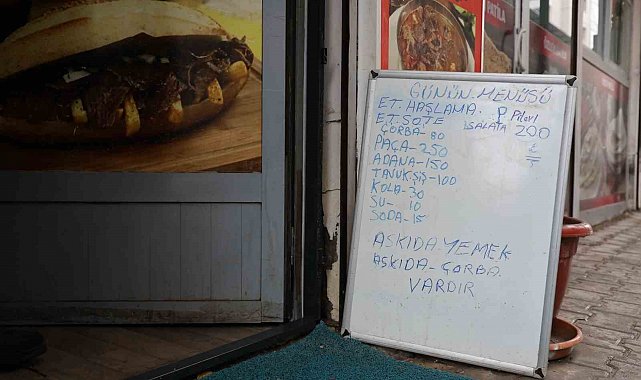 PATİLA
GÜNÜN MENÜSÜ
ET. HAŞLAMA. P Pilavi
ET. SOTE SALATA 200
ÇORBA-80
PAÇA-250
ADANA-150
TAVUK.ŞİŞ-100
KOLA-30
SU- 10
SODA-15
ASKIDA-YEMEK
ASKIDA-ÇORBA
VARDIR